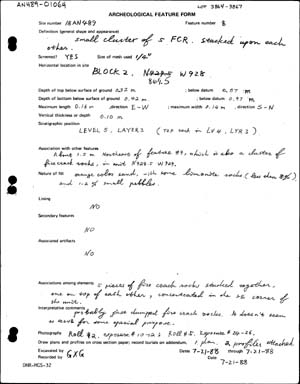 AN489-D1064
LOT 3864-3867
ARCHEOLOGICAL FEATURE FORM
Site number 18AN489
Feature number 8
Definition (general shape and appearance)
small cluster of 5 FCR. stacked upon each
other.
Screened? YES Size of mesh used 1/4"
Horizontal location in site
BLOCK 2, W928
Depth of top below surface of ground ; below datum
Depth of bottom below surface of ground 0.42 m ; below datum 0.97 m
Maximum length 0.16 m ; direction E-W ; maximum width 0.16 m ; direction S-N
Vertical thickness or depth 0.10 m
Stratigraphic position
LEVEL 5, LAYER 3 (Top rock in LV.4, LYR 3)
Association with other features
About 1.5 m Northwest of feature #9, which is also a cluster of
fire crack rocks, in unit
Nature of fill orange color sand, with some limonite rocks (less than
and 1-2% small pebbles.
Lining
NO
Secondary features
NO
Associated artifacts
NO
Associations among elements 5 pieces of fire crack rocks stacked together,
one on top of each other, concentrated in the corner of
the unit.
Interpretative comments probably just dumped fire crack rocks. It doesn't seem
to exist for some special purpose.
Photographs Roll #2, exposure # 10-12; Roll #5, Exposure # 24-26.
Draw plans and profiles on cross section paper; record burials on addendum. 1 plan, 2 profiles attached
Excavated by GXG Dates 7-21-88 through 7-21-88
Recorded by GXG Date 7-21-88
DNR-MGS-32